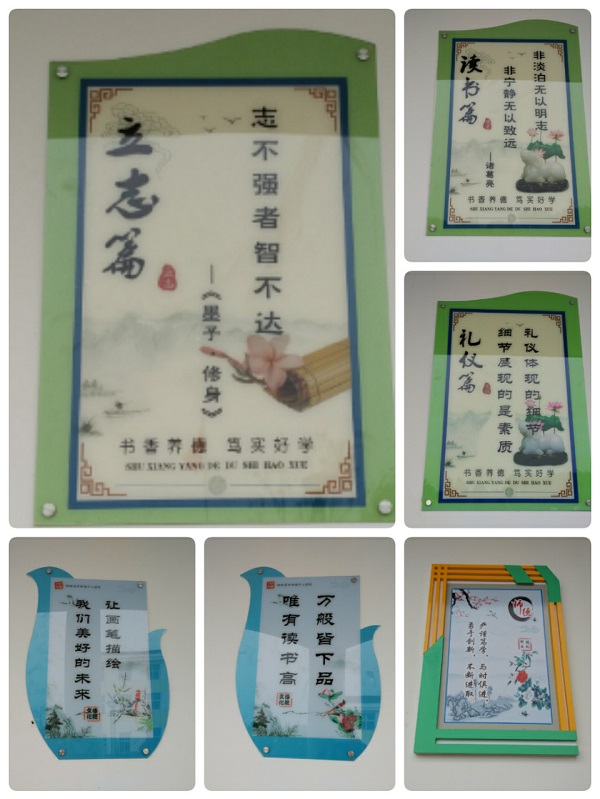 立志篇
志不强者智不达
——《墨子·修身》
书香养德 笃实好学
SHU XIANG YANG DE DU SHI HAO XUE
读书篇
非淡泊无以明志
非宁静无以致远
——诸葛亮
书香养德 笃实好学
SHU XIANG YANG DE DU SHI HAO XUE
礼仪篇
礼仪体现的细节
细节展现的是素质
书香养德 笃实好学
SHU XIANG YANG DE DU SHI HAO XUE
让画笔描绘
我们美好的未来
万般皆下品
唯有读书高
师德
严谨笃学，与时俱进，
勇于创新，不断进取